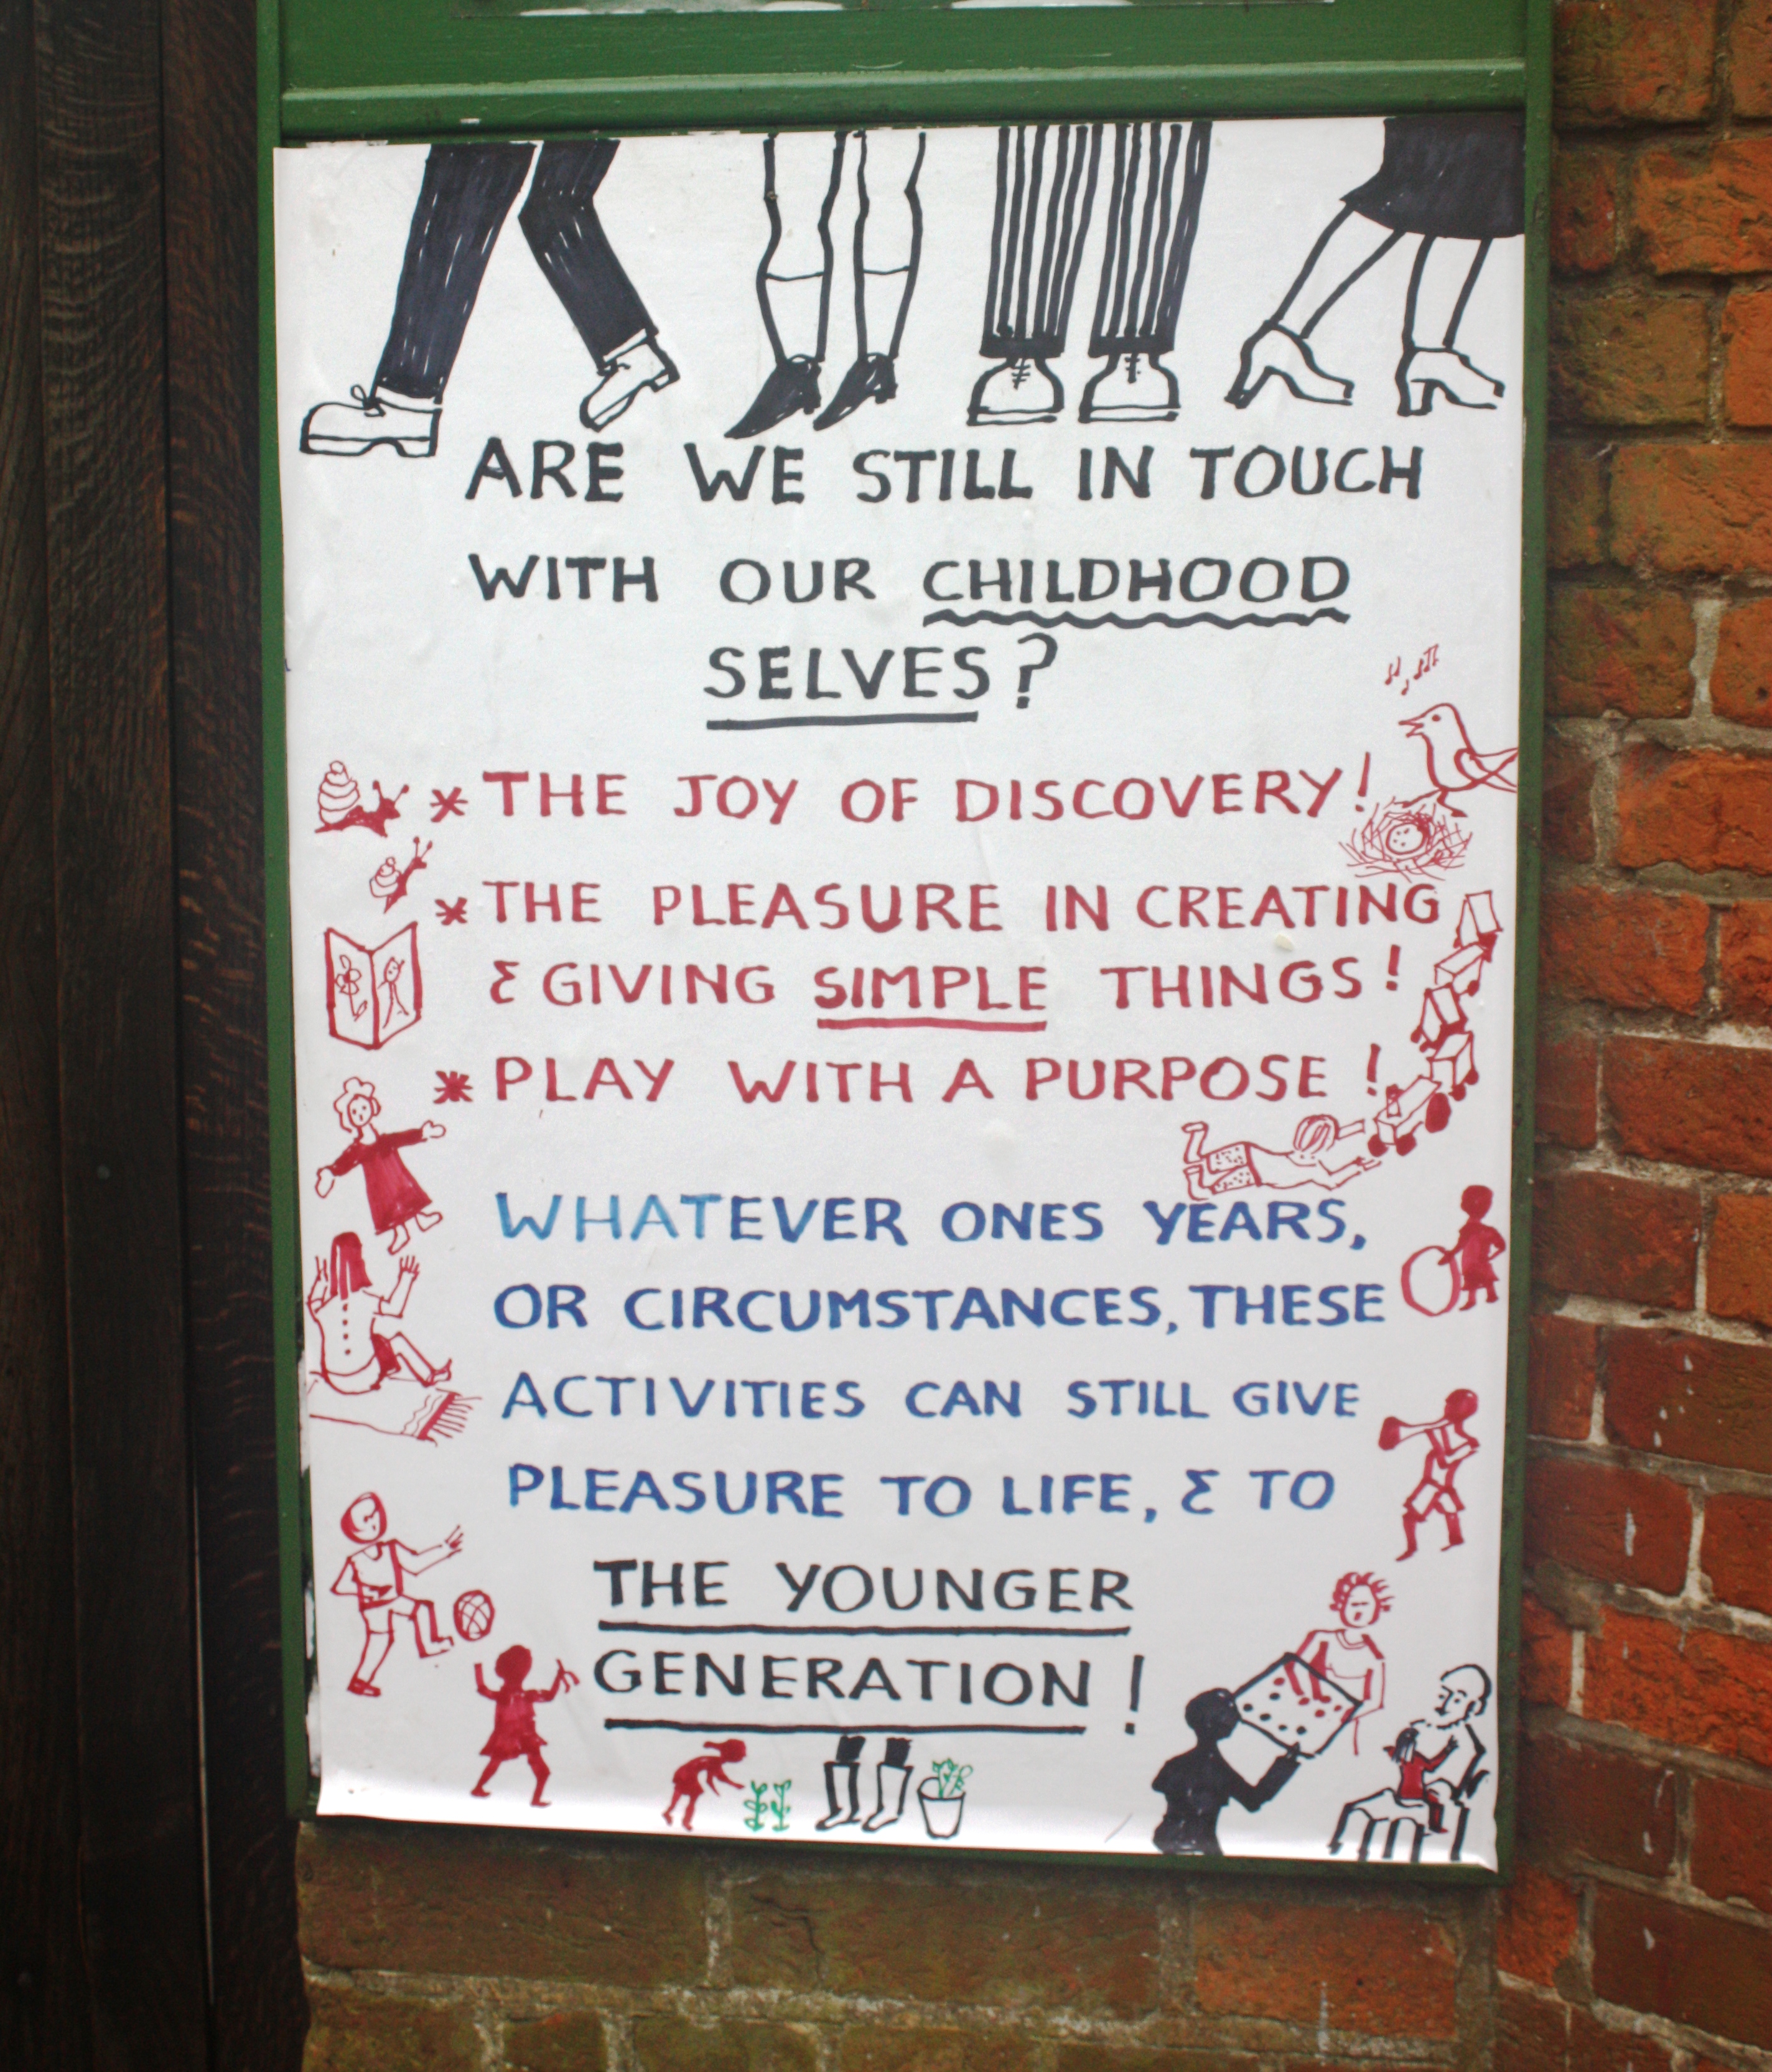 ARE WE STILL IN TOUCH
WITH OUR CHILDHOOD
SELVES?
* THE JOY OF DISCOVERY!
* THE PLEASURE IN CREATING
& GIVING SIMPLE THINGS!
* PLAY WITH A PURPOSE!
WHATEVER ONES YEARS,
OR CIRCUMSTANCES, THESE
ACTIVITIES CAN STILL GIVE
PLEASURE TO LIFE, & TO
THE YOUNGER
GENERATION!